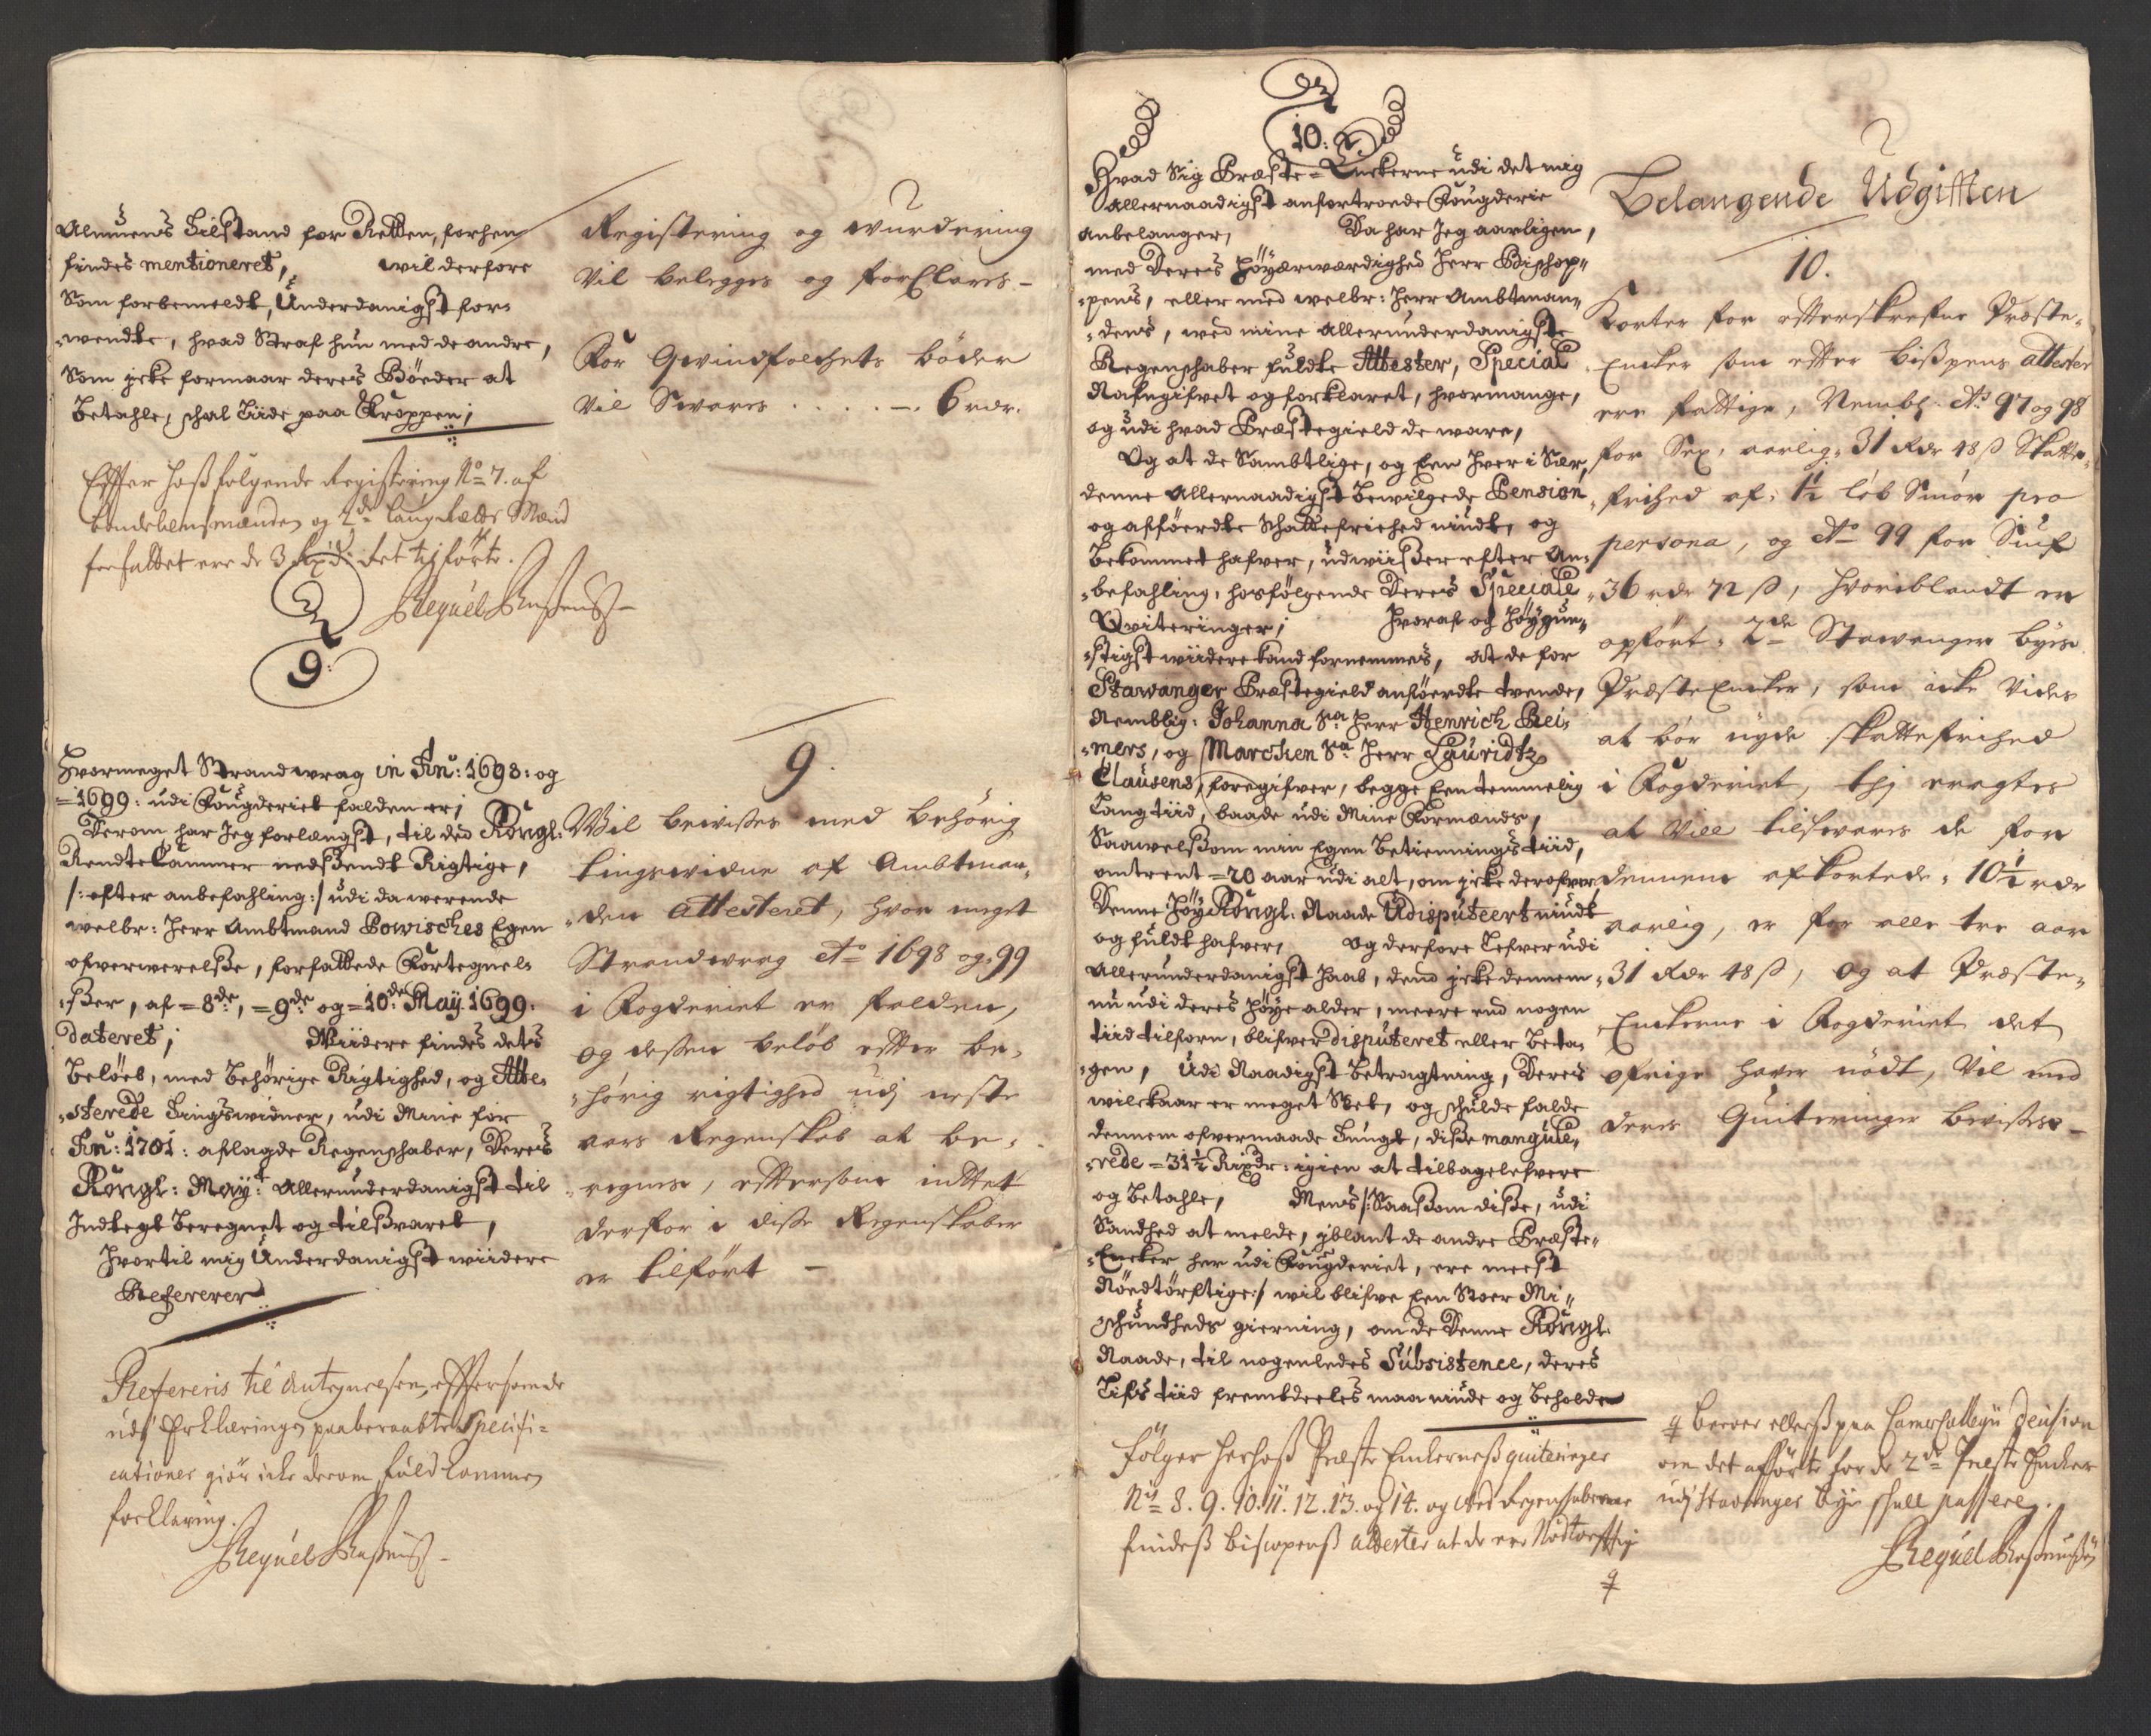 Almuens Tilstand for Retten, forhen
findes mentioneret, wil derfore
Som forbemeldt, Underdanigst for-
-wendte, hvad Straf hun med de andre,
Som icke formaar deres Böeder at
Betahle, schal Liide paa Kroppen;
Effter hoßfølgende Registering No 7. af
bondelensmanden og 2de laugrættes Mænd
forfattet ere de 3 rixdr det tilførte.
9:
Hvormeget Strandwrag in Ano: 1698: og
=1699: udi Fougderiet falden er;
Derom har Jeg forlængst, til det Kongl:
Rendte Cammer nedsendt Rigtige,
/: efter anbefahling :/ udi da werende
welbr: Herr Ambtmand Powisches Egen
ofwerwerelße, forfattede Fortegnel-
-ßer, af =8de, =9de og =10de May 1699:
dateret; Wiidere findes dets
Beløeb, med Behørige Rigtighed, og Atte-
-sterede Tingswidner, udi Mine for
Ano: 1701: aflagde Regenschaber, Deres
Kongl: May:t Allerunderdanigst til
Indtegt Beregnet og tilßvaret,
Hvortil mig Underdanigst wiidere
Refererer
Refereris til Antegnelsen, efftersom de
udj Erklæringen paaberaabte Specifi-
cationer giör icke derom fuldkommen
forklaring.
Registering og wurdering
Vil belegges og forClaris -
For Qvindfolchets böder
Vil Swares . . . . . -. 6 rdr.
9.
Wil bewißes med behörig
tingswidne af Ambtman-
-den attesteret, hvor meget
Strandwrag Ao 1698 og 99
i Fogderiet er falden,
og deßen beløb efter be-
-hörig rigtighed udj neste
aars Regenskab at be-
-regnis, eftersom intet
derfor i diße Regenskaber
er tilfört -
10:
Hvad Sig Præste-Enckerne udi det mig
allernaadigst anfortroede Fougderie
anbelanger, Da har Jeg aarligen,
med Deres Høyærwærdighed Herr Bischop-
-pens, eller med welbr: Herr Ambtman-
-dens, wed mine allerunderdanigste
Regenschaber fuldte Attester, Special
Nafngifvet og forklaret, hvormange,
og udi hvad Præstegield de ware,
Og at de Sambtlige, og Een hver i Sær,
denne Allernaadigst Bewilgede Pension
og afföerdte Schattefriehed niudt, og
Bekommet hafver, udwiißer efter An-
-befahling, hosfølgende Deres Speciale
Qviteringer; Hvoraf og Høygun-
-stigst wiidere kand fornemmes, at de for
Stawanger Præstegield anføerdte tvende,
Nemblig: Johanna Sa Herr Henrich Rei-
-mers, og Marchen Sa Herr Lauridtz
Clausens, foregifver, begge Een temmelig
Lang tiid, baade udi Mine Formænds,
Saawelßom min Egen Betiennings tiid,
omtrent =20 aar udi alt, om icke derofver
Denne Høy Kongl: Naade Udisputeert niudt
og fuldt hafver, og derfore Lefver udi
allerunderdanigst Haab, dend icke dennem
nu udi deres høye alder, meere end nogen
tiid tilforn, blifver disputeret eller Beta-
-gen, Udi Naadigst Betragtning, Deres
wilckaar er meget Slet, og schulde falde
dennem ofvermaade Tungt, diße mangule-
-rede =31½ Rixdr: igien at tilbagelefvere
og Betahle, Mens /: Saaßom diße, udi
Sandhed at melde, iblant de andre Præste-
-Encker her udi Fougderiet, ere meest
Nöedtörftige :/ wil blifve Een Stoer Mi-
schundheds gierning, om de Denne Kongl:
Naade, til nogenledes Subsistence, deres
Lifs tiid frembdeeles maa niude og Beholde
Fölger herhoß Præste Enckerneß quiteringer
No 8. 9. 10. 11. 12. 13. og 14. og ved Regenskaberne
findeß biscopenß attester at de ere Nödtorfftig
Belangende Udgifften
10.
Korter for efterskrefne Præste-
Encker som efter bißpens attester
ere fattige, Nembl. Ao 97 og 98
for Sex, aarlig 31 Rdr 48 ß Skatte-
-frihed af 1½ löb Smör pro
persona, og Ao 99 for Siuf
36 rdr 72 ß, hvoriblandt er
opfört 2de Stawanger byes
Præste Encker, som icke Vides
at bör nyde skattefrihed
i Fogderiet, thj eragtes
at Vill tilswares de for
dennem afkortede 10½ rdr
aarlig, er for alle tre aar
31 Rdr 48 ß, og at Præste-
-Enckerne i Fogderiet det
öfrige haver nödt, Vil med
deres Quiteringer bewißes -
beroer ellerß paa Camer Collegii Decision
om det afførte for de 2de Præste Encker
udj Stavanger bye skall passere.